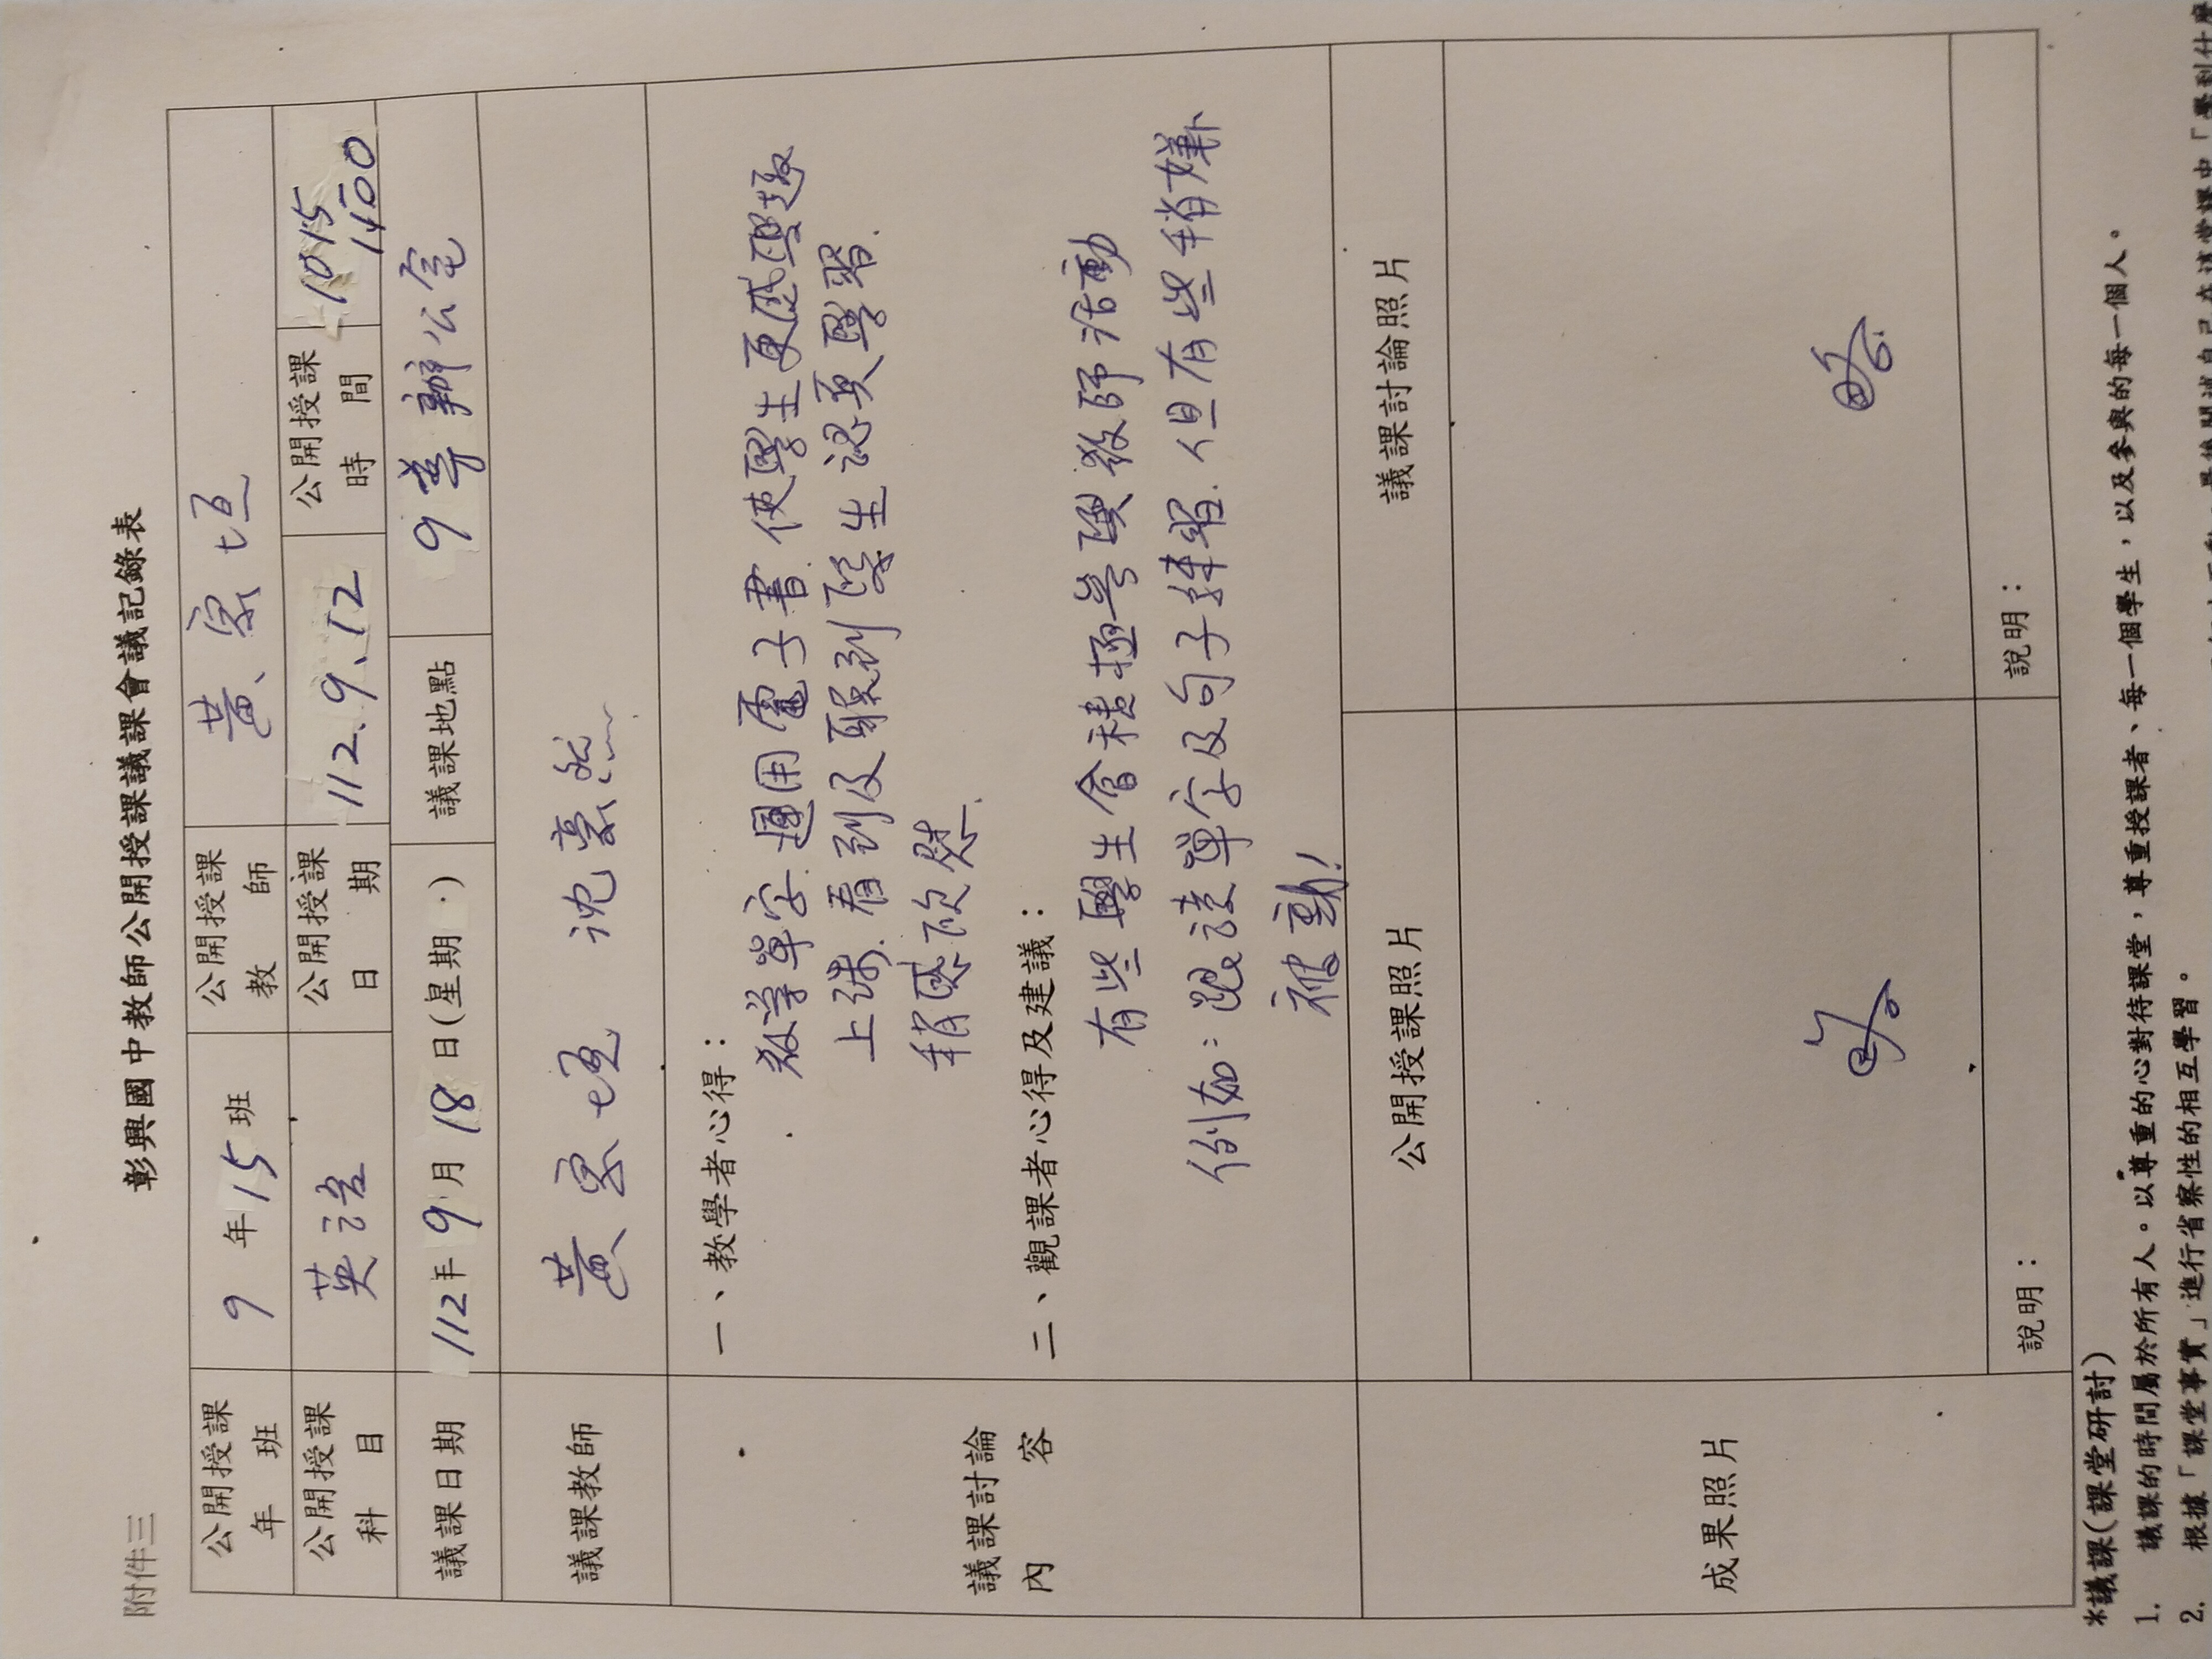 附件三
彰興國中教師公開授課議課會議記錄表
公開授課年班 9 年 15 班 公開授課教師 黃宗垣
公開授課科目 英語 公開授課日期 112.9.12 公開授課時間 1015 1100
議課日期 112年 9 月 18 日(星期 ) 議課地點 9 導辦公室
議課教師 黃宗垣 沈豪然
議課討論內容
一、教學者心得:
教學單字.運用電子書.使學生更感興趣
上課.看到及聽到學生認真學習.
稍感欣慰.
二、觀課者心得及建議:
有些學生會積極參與教師活動
例如:跟讀單字及句子練習.但有些稍嫌
被動!
成果照片
公開授課照片 議課討論照片
略. 略.
說明: 說明:
*議課(課堂研討)
1. 議課的時間屬於所有人。以尊重的心對待課堂,尊重授課者、每一個學生,以及參與的每一個人。
2. 根據「課堂事實」進行省察性的相互學習。